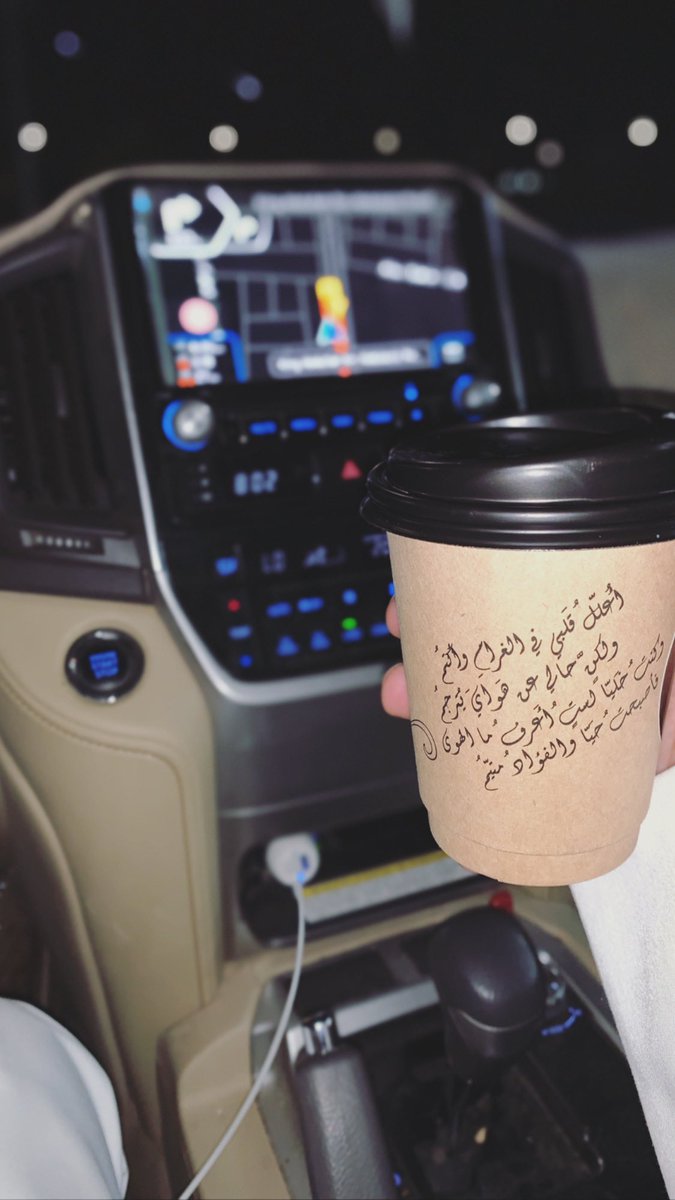 8:02
LO
START
STOP
أُعلّل قَلبي في الغرامِ وأكتمُ
ولكنّ حالي عن هَوايَ يُترجمُ
وكنتُ خليًا لستُ أعرفُ ما الهوى
فأصبحتُ حيًا والفؤادُ مُتيّمُ